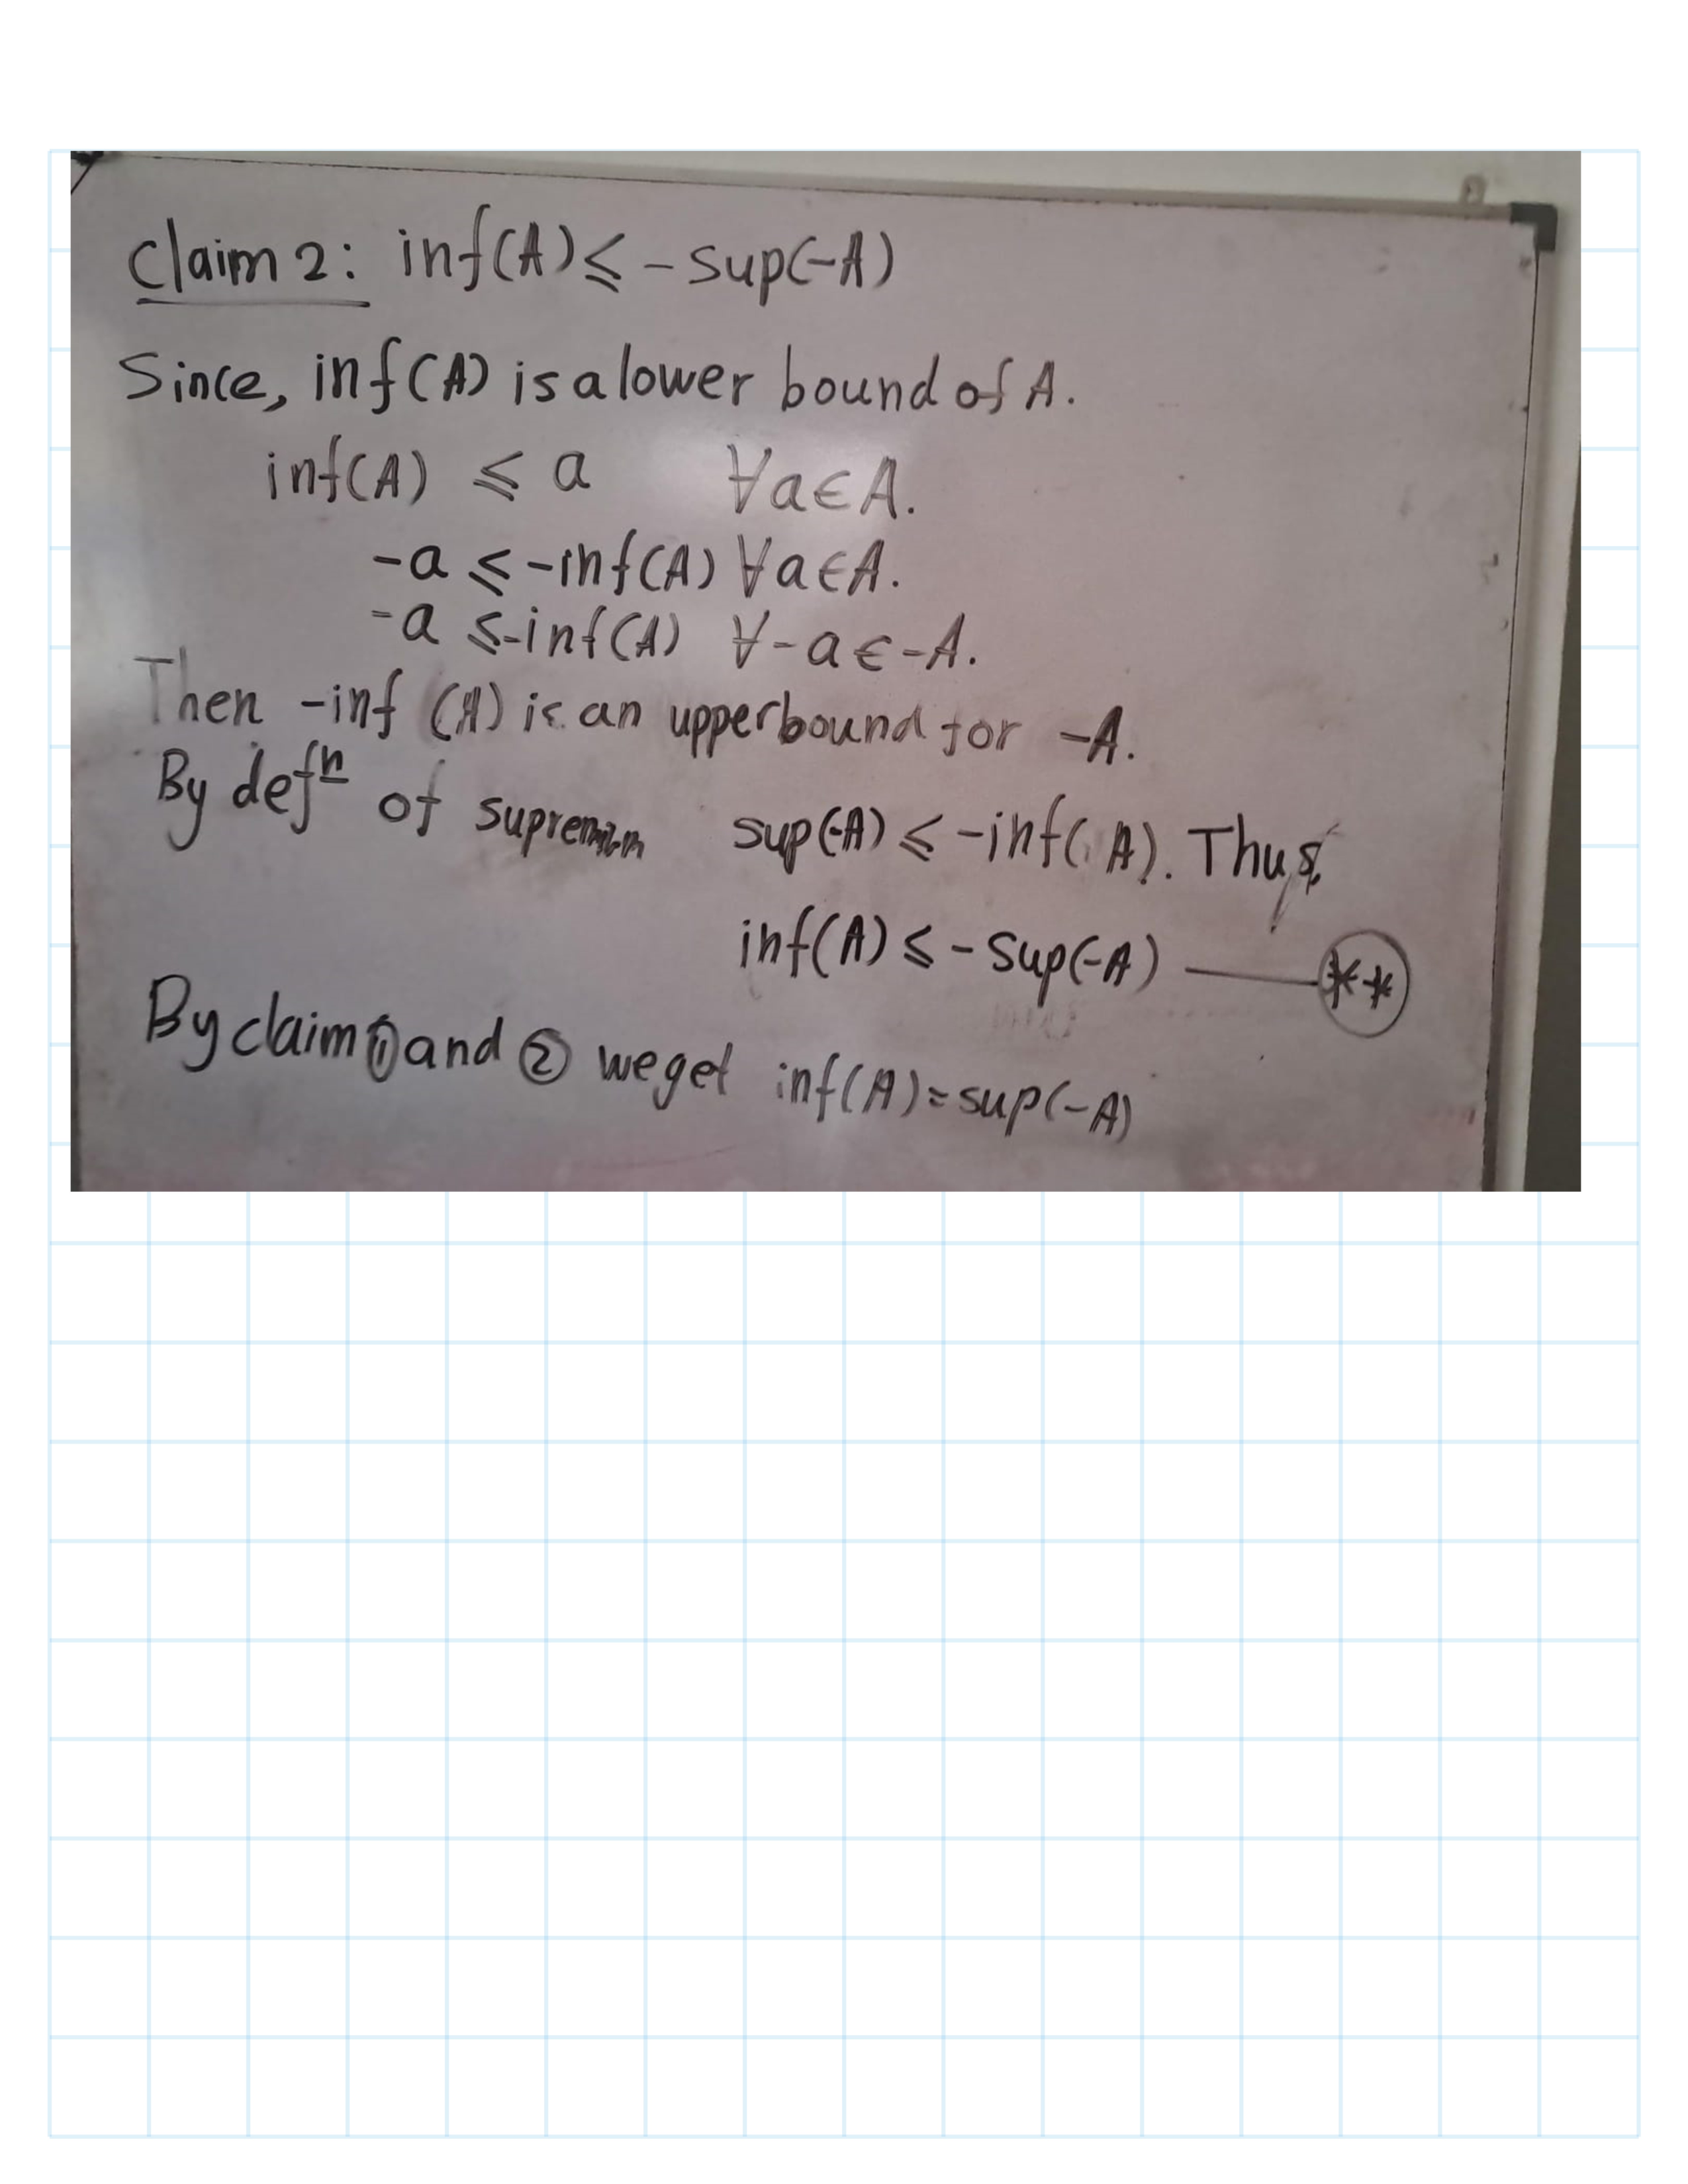 Claim 2: inf(A) ⩽ -sup(-A)
Since, inf(A) is a lower bound of A.
inf(A) ⩽ a ∀a∈A.
-a ⩽ -inf(A) ∀a∈A.
-a ⩽ -inf(A) ∀-a∈-A.
Then -inf (A) is an upperbound for -A.
By defⁿ of supremum sup(-A) ⩽ -inf(A). Thus,
inf(A) ⩽ -sup(-A) —— **
By claim ① and ② we get inf(A)=sup(-A)